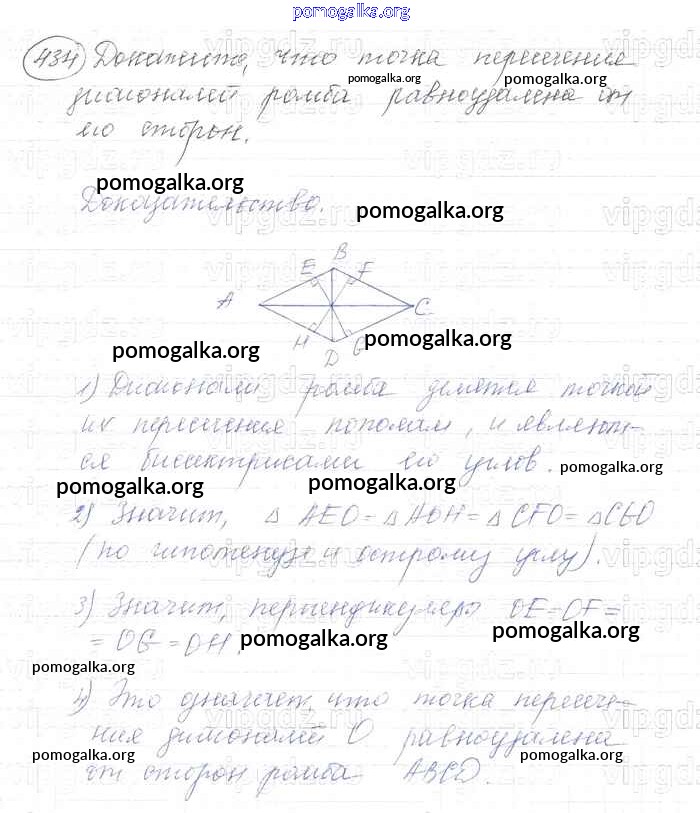 pomogalka.org
434 Докажите, что точка пересечения
pomogalka.org pomogalka.org
диагоналей ромба равноудалена от
его сторон.
pomogalka.org
Доказательство.
pomogalka.org
B
E F
A C
H G
D
pomogalka.org pomogalka.org
1) Диагонали ромба делятся точкой
их пересечения пополам, и являют-
ся биссектрисами его углов. pomogalka.org
pomogalka.org pomogalka.org
2) Значит, △ AEO = △ AOH = △ CFO = △ CGO
(по гипотенузе и острому углу).
3) Значит, перпендикуляры OE = OF =
= OG = OH. pomogalka.org pomogalka.org
pomogalka.org pomogalka.org
4) Это означает, что точка пересече-
ния диагоналей O равноудалена
pomogalka.org pomogalka.org pomogalka.org
от сторон ромба ABCD.